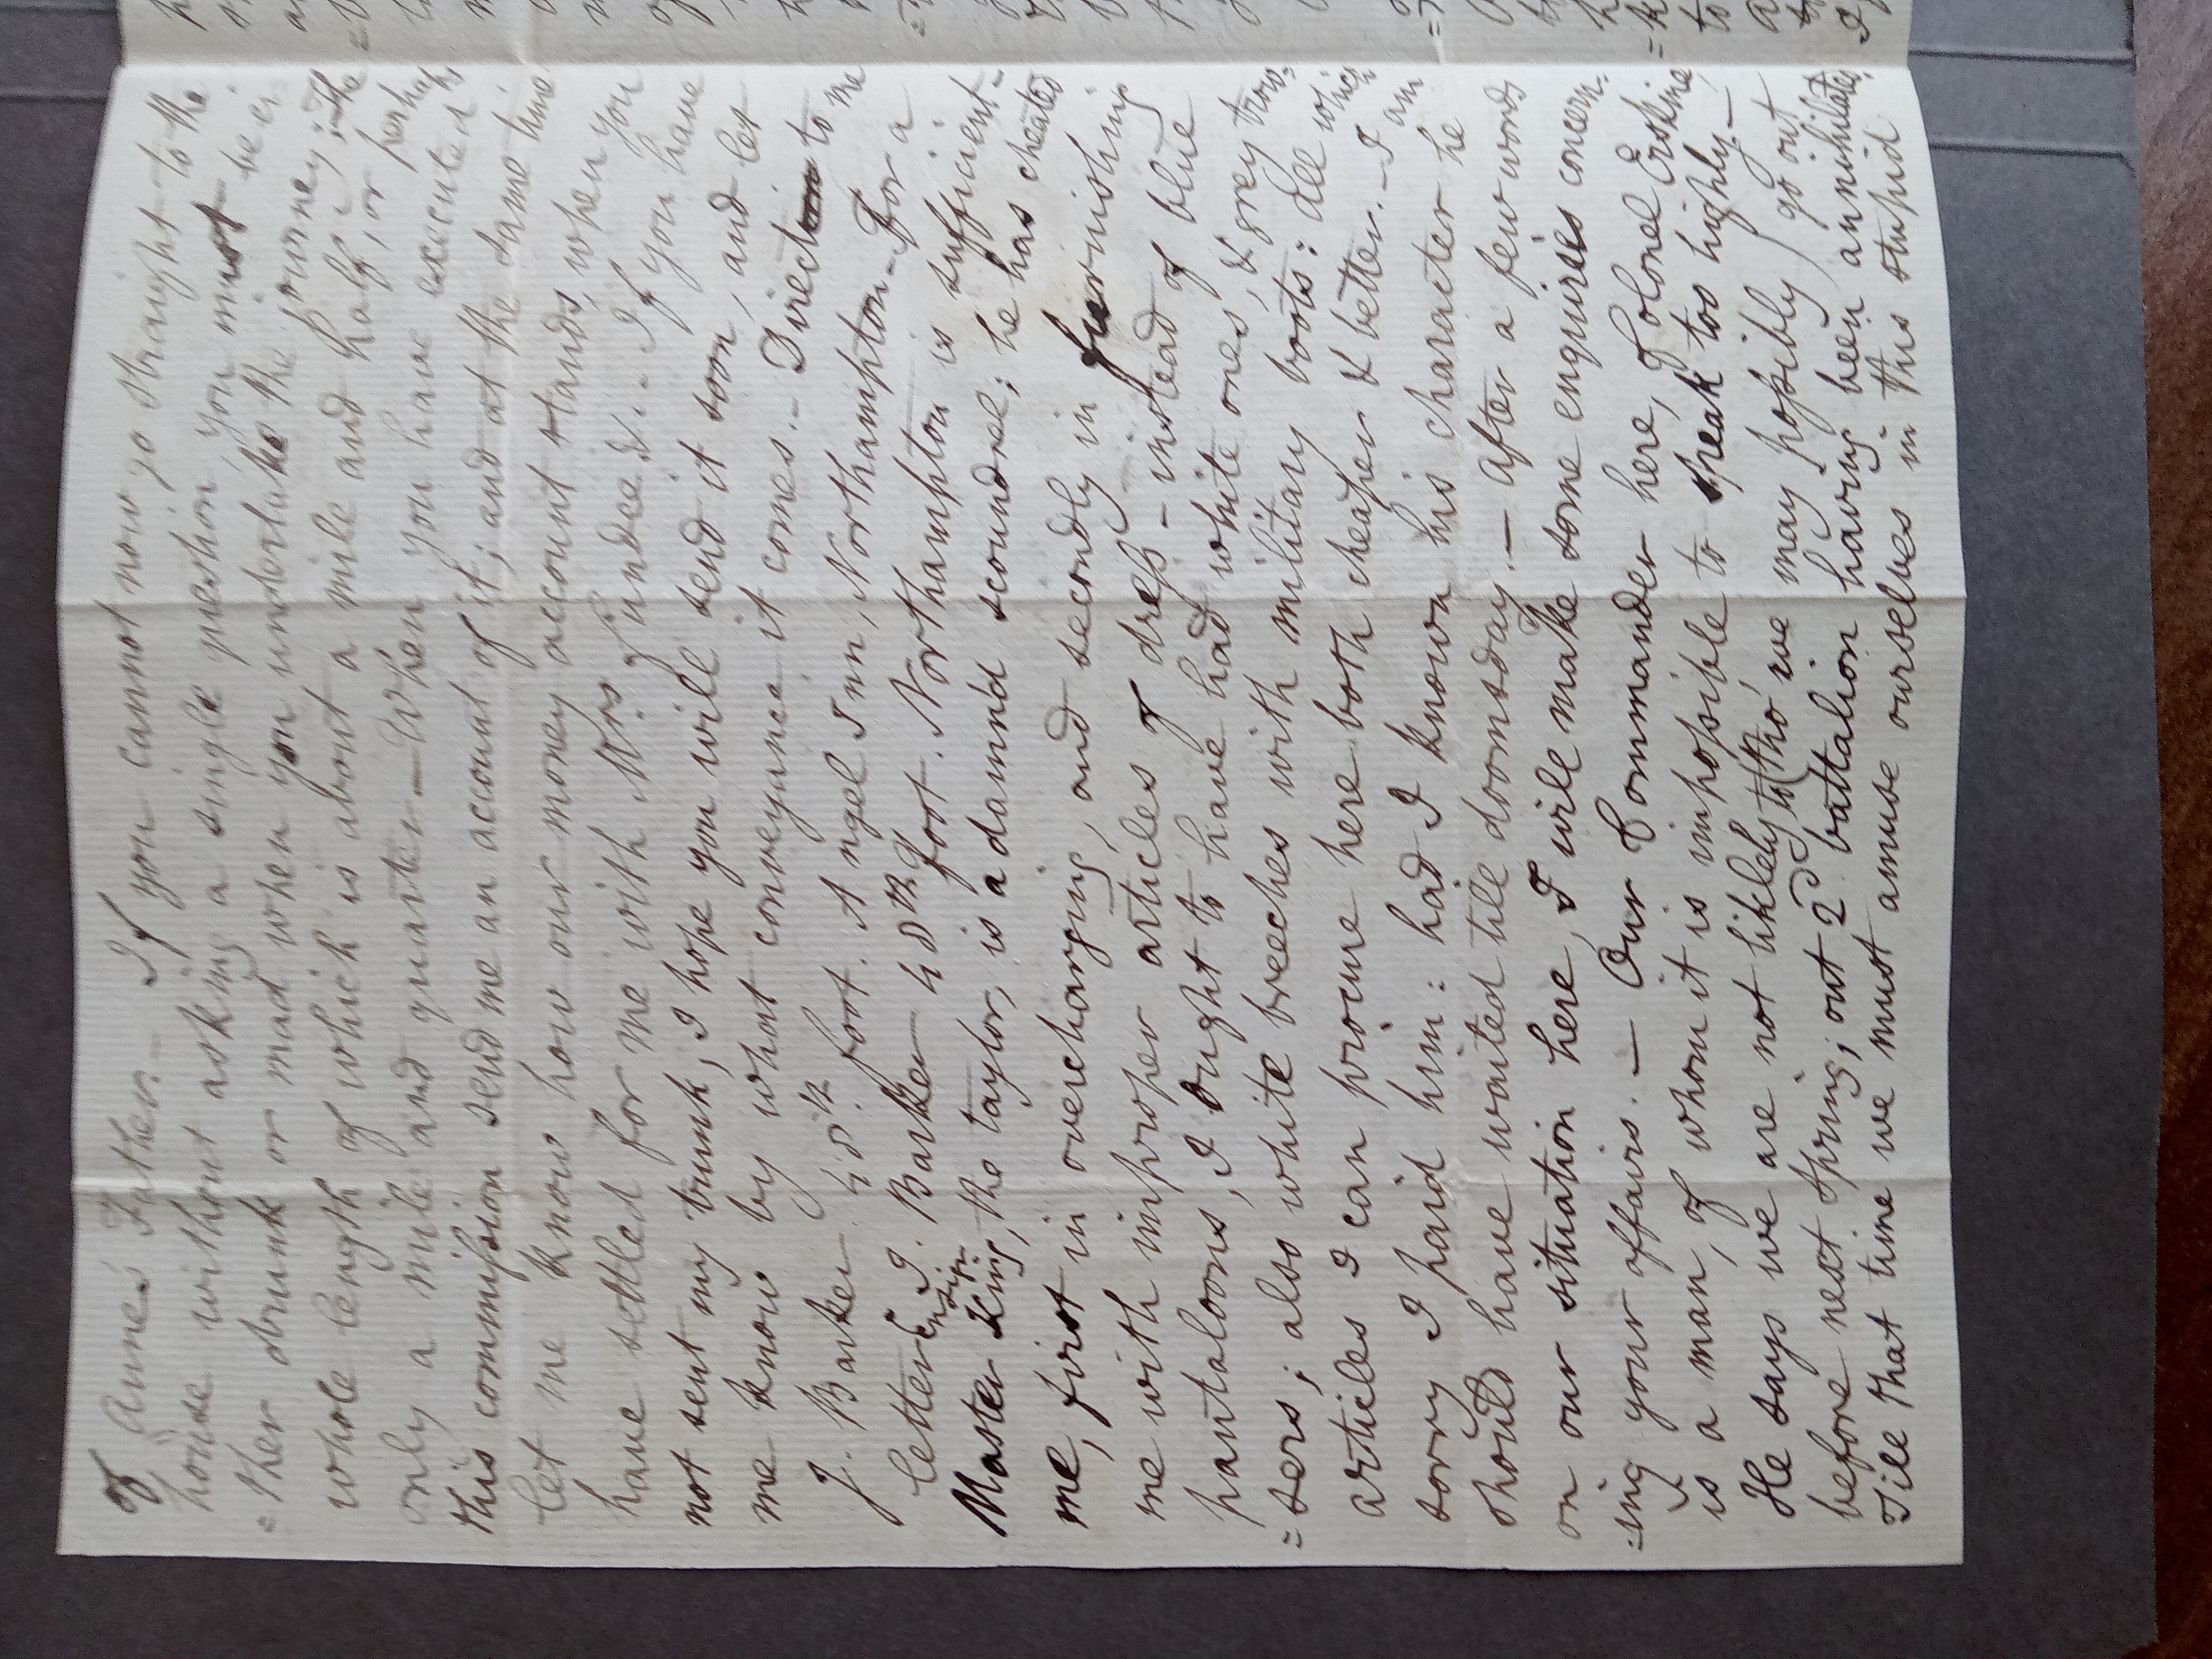 of Anne's Father. - If you cannot now go straight to the
house without asking a single question, you must be ei-
=ther drunk or mad when you undertake the journey; the
whole length of which is about a mile and half, or perhaps
only a mile and quarter - When you have executed
this commission send me an account of it; and at the same time
let me know how our money account stands, when you
have settled for me with Mrs. - If you have
not sent my trunk, I hope you will send it soon, and let
me know by what conveyance it comes. - Direct to me
J. Barker 48th. foot. Angel Inn, Northampton. - For a
letter Ensign J. Barker 48th. foot. Northampton is sufficient -
Master King, the taylor, is a damn'd scoundrel; he has cheated
me, first in overcharging, and secondly in furnishing
me with improper articles of dress - instead of blue
pantaloons, I ought to have had white ones, & grey trow-
=sers; also white breeches with military boots: all which
articles I can procure here both cheaper & better. - I am
sorry I paid him: had I known his character he
should have waited till doomsday. - after a few words
on our situation here, I will make some enquiries concern-
=ing your affairs. - Our Commander here, Colonel Erskine
is a man, of whom it is impossible to speak too highly. -
He says we are not likely to (tho' we may possibly) go out
before next Spring; our 2d battalion having been annihilated.
Till that time we must amuse ourselves in this stupid